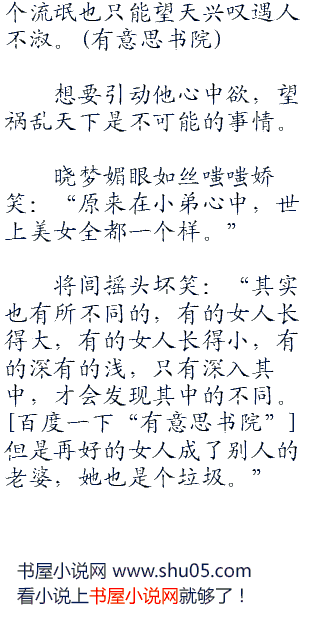 个流氓也只能望天兴叹遇人
不淑。(有意思书院)
想要引动他心中欲，望
祸乱天下是不可能的事情。
晓梦媚眼如丝嗤嗤娇
笑：“原来在小弟心中，世
上美女全都一个样。”
将闾摇头坏笑：“其实
也有所不同的，有的女人长
得大，有的女人长得小，有
的深有的浅，只有深入其
中，才会发现其中的不同。
[百度一下“有意思书院”]
但是再好的女人成了别人的
老婆，她也是个垃圾。”
书屋小说网 www.shu05.com
看小说上书屋小说网就够了！